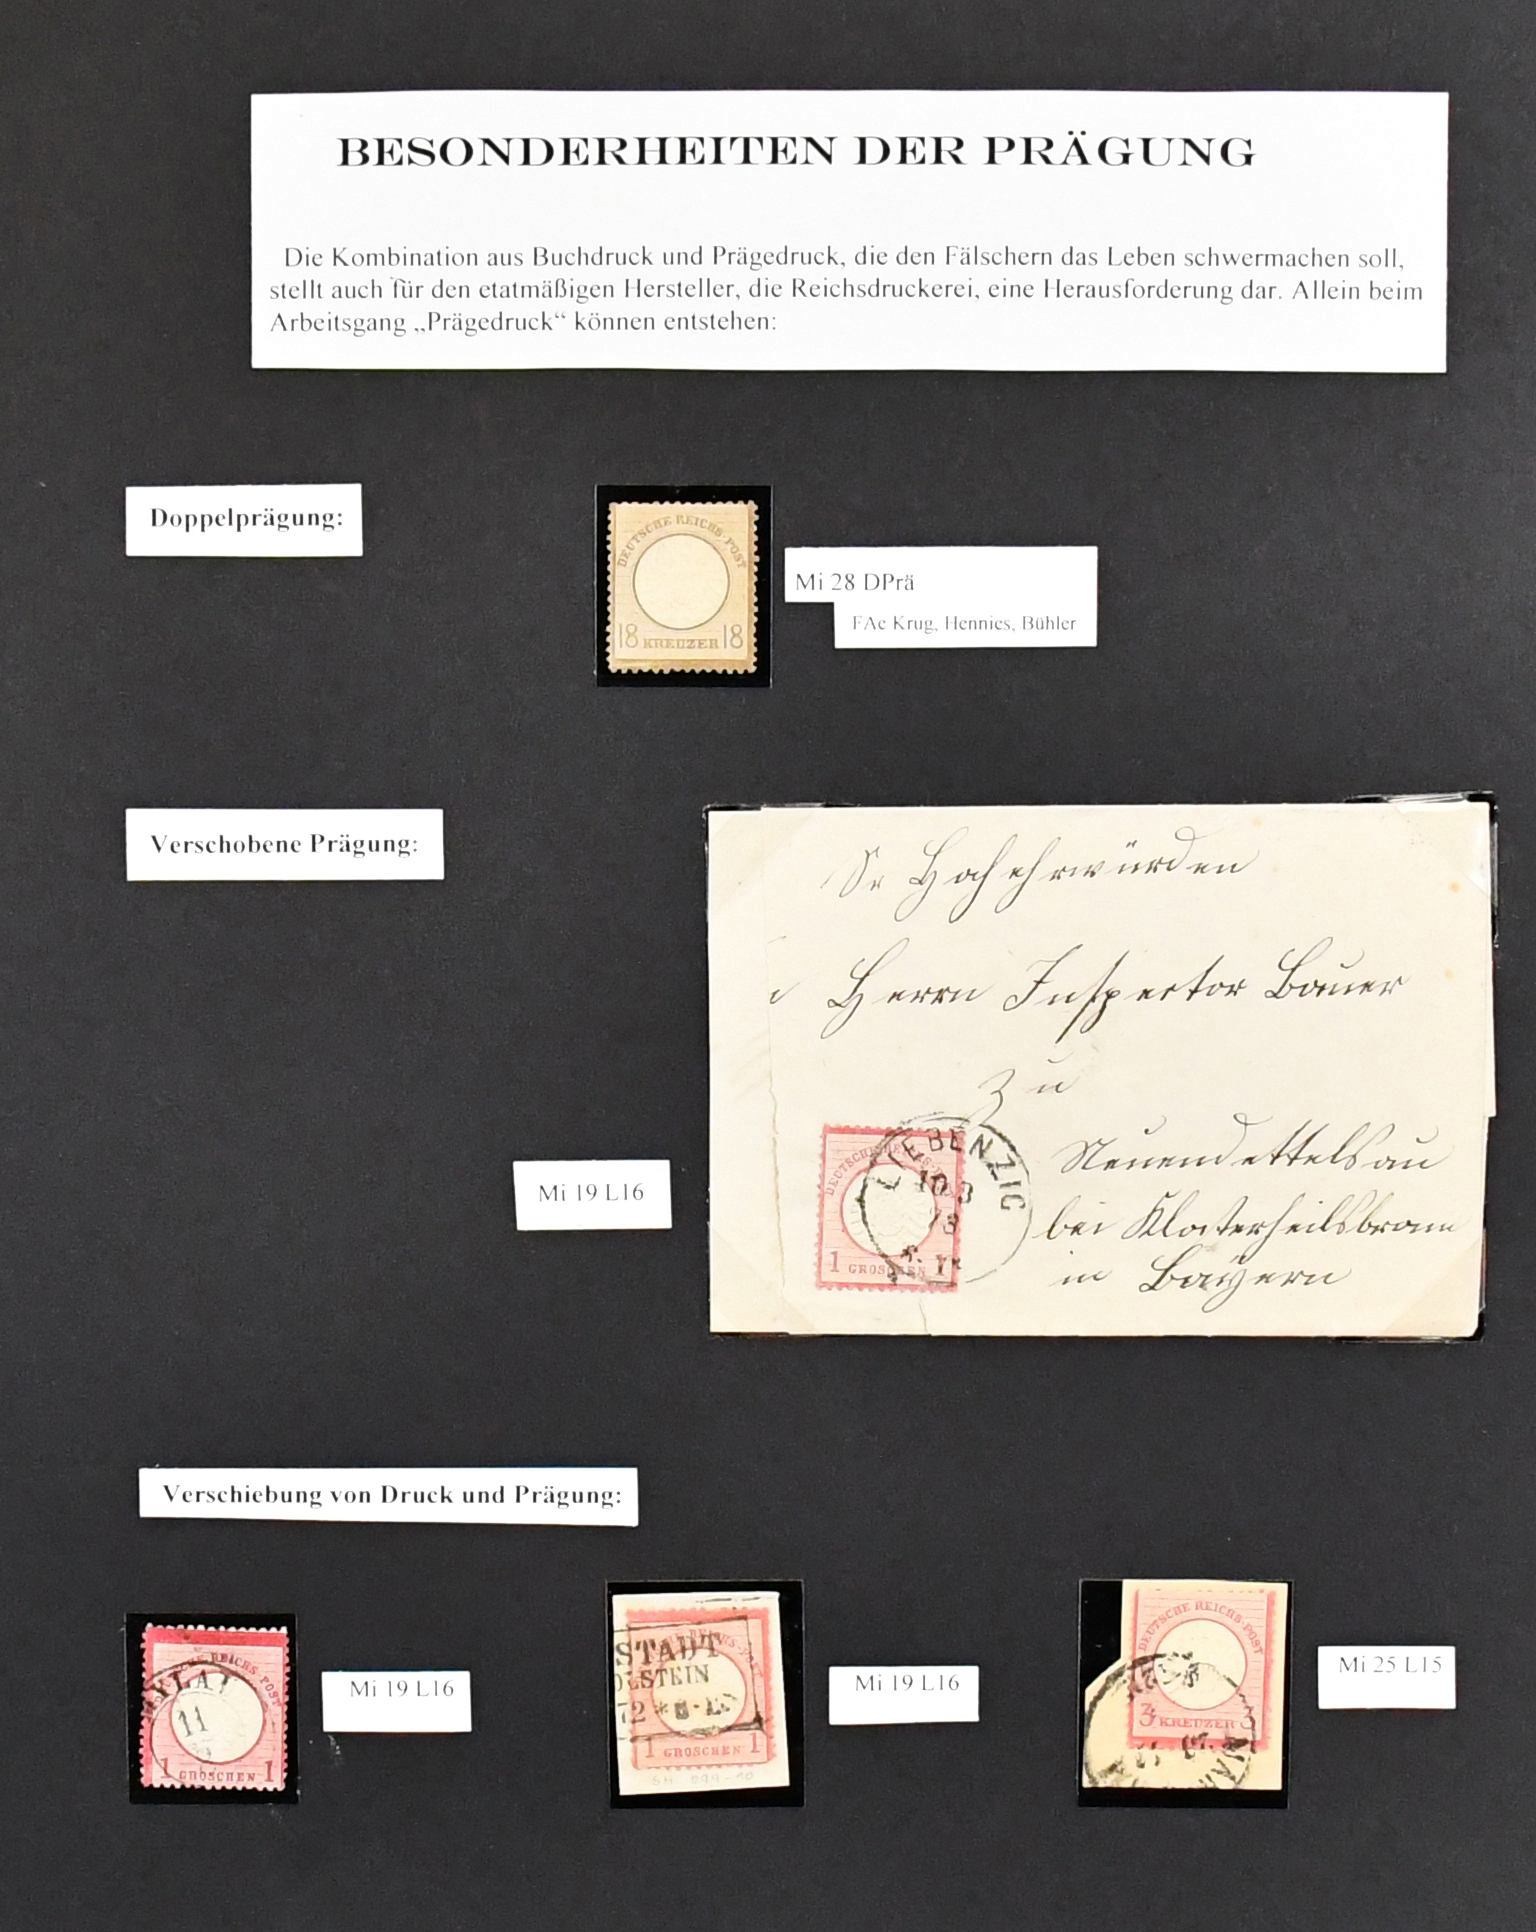 BESONDERHEITEN DER PRÄGUNG
Die Kombination aus Buchdruck und Prägedruck, die den Fälschern das Leben schwermachen soll,
stellt auch für den etatmäßigen Hersteller, die Reichsdruckerei, eine Herausforderung dar. Allein beim
Arbeitsgang „Prägedruck“ können entstehen:
Doppelprägung:
DEUTSCHE REICHS-POST
18 KREUZER 18
Mi 28 DPrä
FAe Krug, Hennies, Bühler
Verschobene Prägung:
Sr Hochehrwürden
Herrn Inspector Bauer
zu
Neuendettelsau
bei Klosterheilsbronn
in Bayern
LIEBENZIG
10 3
DEUTSCHE
1 GROSCHEN 1
Mi 19 L16
Verschiebung von Druck und Prägung:
REICHS-POST
11
1 GROSCHEN 1
Mi 19 L16
REICHS-POST
STADT
OLSTEIN
72 *
1 GROSCHEN 1
Mi 19 L16
DEUTSCHE REICHS-POST
3 KREUZER 3
Mi 25 L15